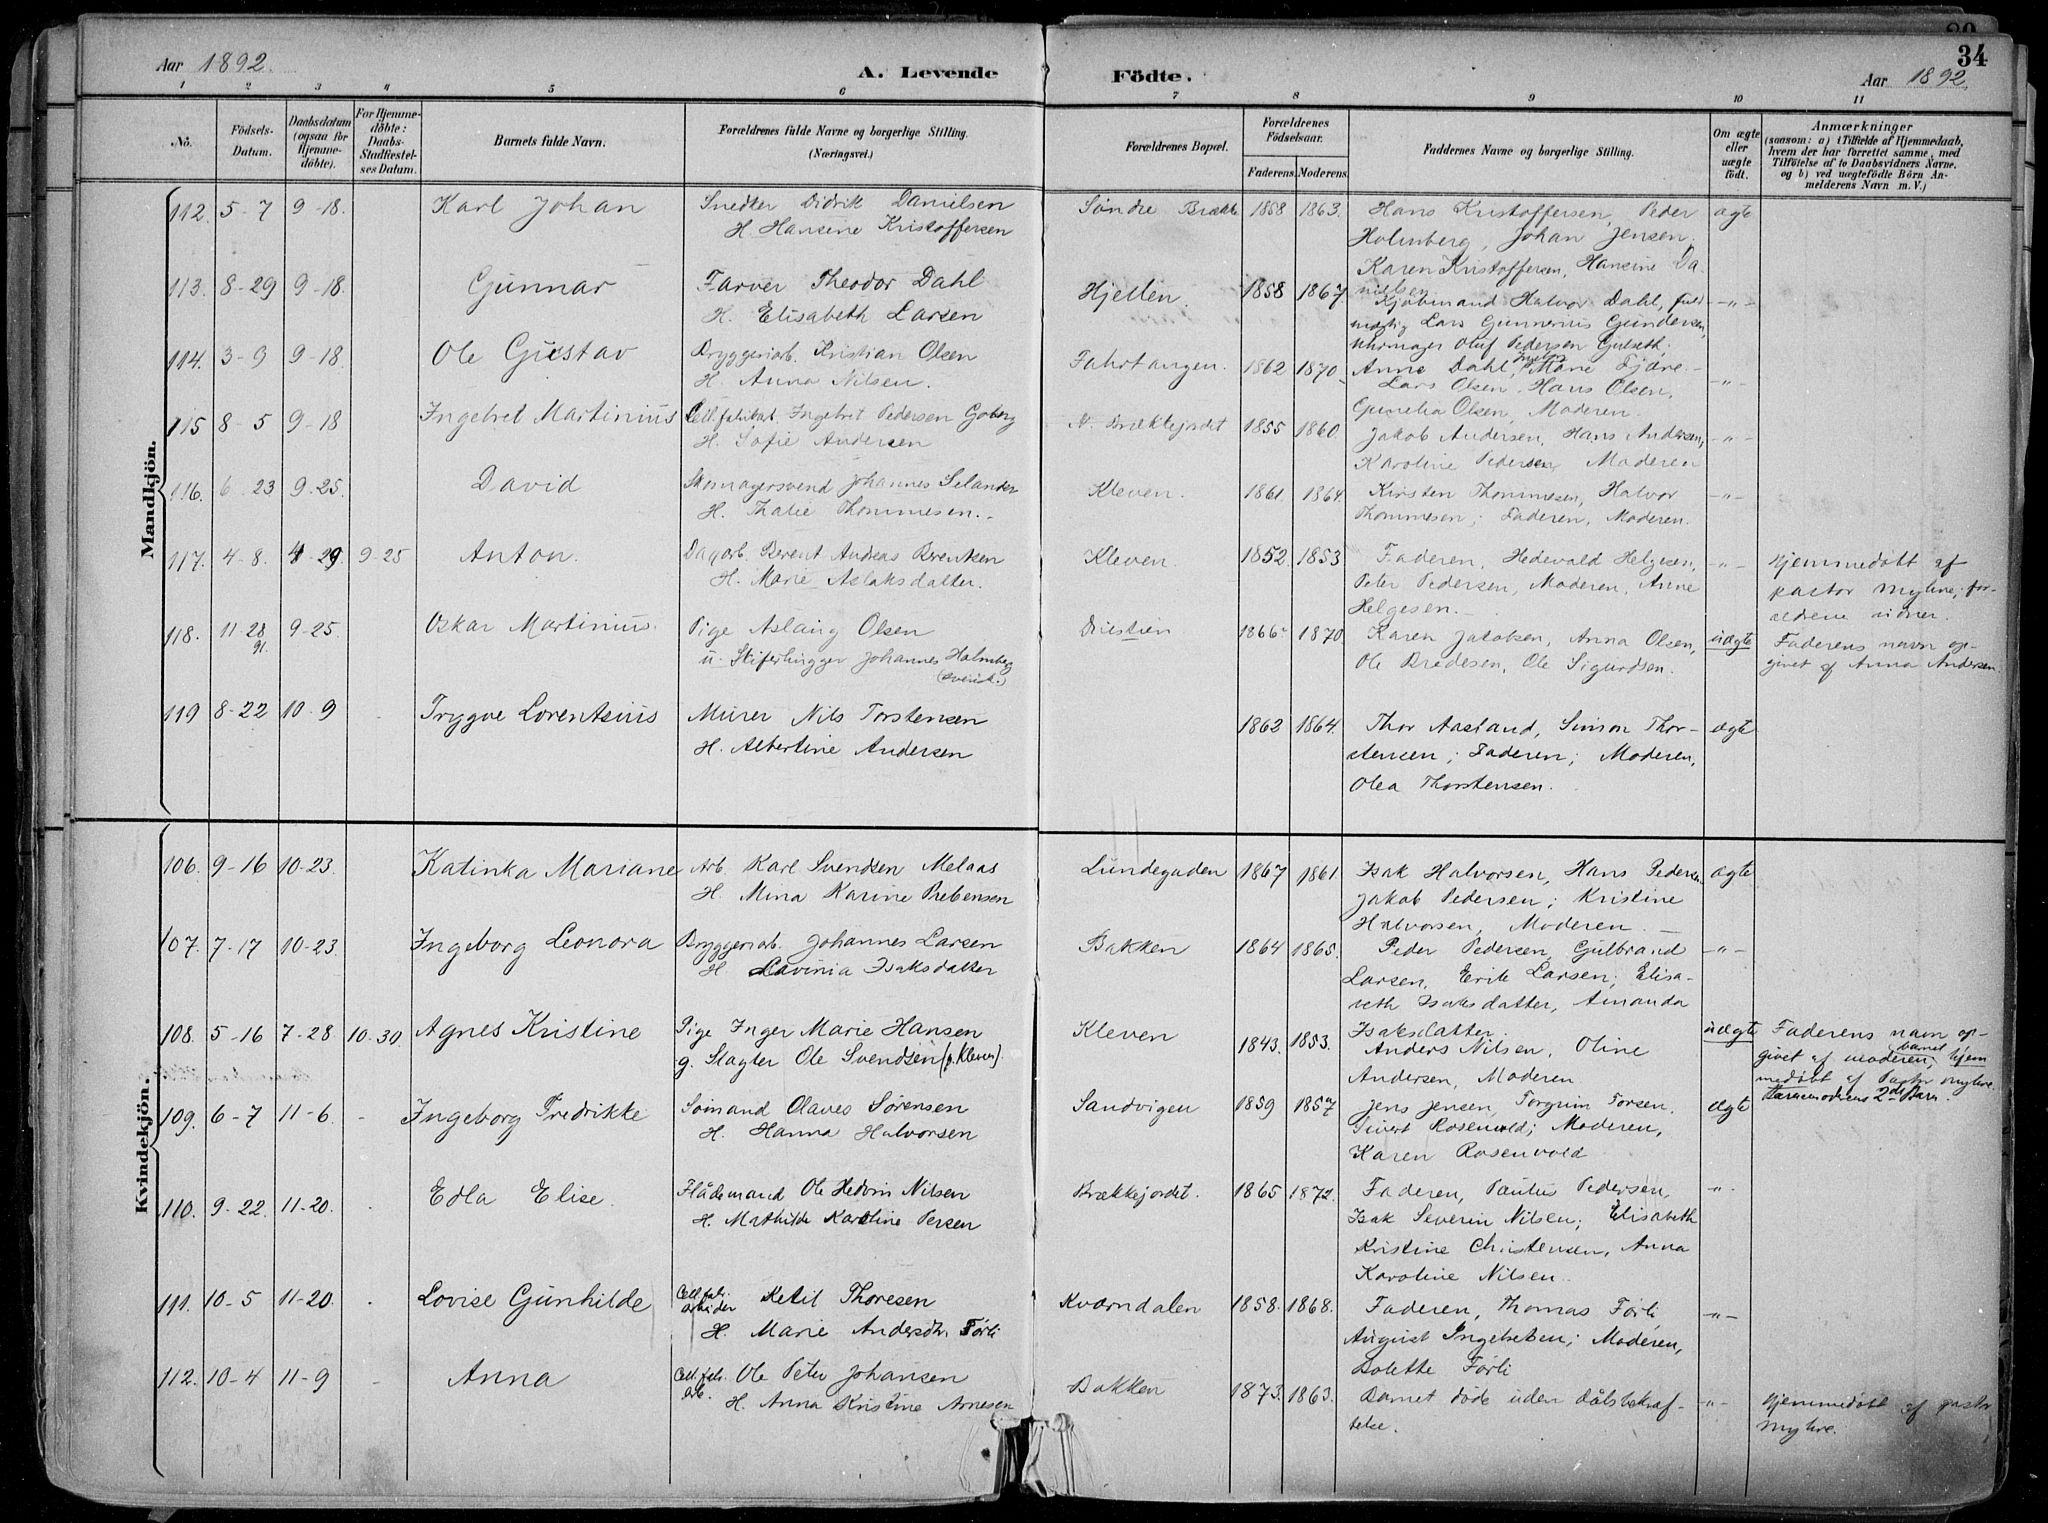 34
Aar 1892.
A. Levende Födte.
Aar 1892.
1 2 3 4 5 6 7 8 9 10 11
No.
Födsels-Datum.
Daabsdatum (ogsaa for Hjemme-döbte).
For Hjemme-döbte: Daabs-Stadfæstel-ses Datum.
Barnets fulde Navn.
Forældrenes fulde Navne og borgerlige Stilling. (Næringsvei.)
Forældrenes Bopæl.
Forældrenes Födselsaar.
Faderens. Moderens.
Faddernes Navne og borgerlige Stilling.
Om ægte eller uægte födt.
Anmærkninger
(saasom: a) i Tilfælde af Hjemmedaab, hvem der har forrettet samme, med Tilföielse af to Daabsvidners Navne, og b) ved uægtefödte Börn An-melderens Navn m. V.)
Mandkjön.
112. 5-7 9-18. Karl Johan Snedker Didrik Danielsen
H. Hansine Kristoffersen
Søndre Brække 1858 1863. Hans Kristoffersen, Peder
Holmberg, Johan Jensen,
Karen Kristoffersen, Hansine Da-
nielsen
ægte
113. 8-29 9-18. Gunnar Farver Theodor Dahl
H. Elisabeth Larsen
Hjellen. 1858 1867 Kjøbmand Halvor Dahl, fuld
mægtig Lars Gunnerius Gundersen,
Uhrmager Oluf Pedersen Gulseth,
Anne Dahl, Marie Fjære -
-"-
114. 3-9 9-18. Ole Gustav Bryggeriarb. Kristian Olsen
H. Anna Nilsen.
Fahrtangen. 1862 1870 Lars Olsen, Hans Olsen,
Gunelia Olsen, Moderen.
-"-
115 8-5 9-18 Ingebret Martinius Cell.fabrikat. Ingebret Pedersen Goberg
H. Sofie Andersen
N. Brækkejordet 1855 1860. Jakob Andersen, Hans Andersen,
Karoline Pedersen, Moderen
-"-
116. 6-23 9-25. David Skomagersvend Johannes Selander
H. Thalie Thommesen.
Kleven. 1861. 1864. Kirsten Thommesen, Halvor
Thommesen; Faderen, Moderen.
-"-
117. 4-8. 4-29 9-25 Anton. Dagarb. Berent Andreas Berentsen
H. Marie Aslaksdatter.
Kleven. 1852. 1853 Faderen, Hedevald Helgesen,
Peter Pedersen, Moderen, Anne
Helgesen. -
-"-
Hjemmedøbt af
pastor Myhre; for-
ældrene vidner.
118. 11-28 91. 9-25. Oskar Martinius. Pige Aslaug Olsen
u. Skiferhugger Johannes Halmberg
(svensk.)
1866 1870 Karen Jakobsen, Anna Olsen,
Ole Bredesen, Ole Sigurdsen.
uægte
Faderens navn op-
givet af Anna Andersen
119 8-22 10-9 - Trygve Lorentsius Murer Nils Torstensen
H. Albertine Andersen
1862 1864. Thor Aasland, Simon Thor-
stensen; Faderen; Moderen,
Olea Thorstensen.
ægte
Kvindekjön.
106. 9-16 10-23. Katinka Mariane Arb. Karl Svendsen Melaas
H. Mina Karine Prebensen
Lundegaden 1867 1861 Isak Halvorsen, Hans Pedersen
Jakob Pedersen; Kristine
Halvorsen, Moderen. -
ægte
107. 7-17 10-23. Ingeborg Leonora Bryggeriab. Johannes Larsen
H. Lavinia Isaksdatter
Bakken 1864 1865. Peder Pedersen, Gulbrand
Larsen, Erik Larsen; Elisa-
beth Isaksdatter, Amanda
Isaksdatter.
-"-
108. 5-16 7-28 10-30 Agnes Kristine Pige Inger Marie Hansen
g. Slagter Ole Svendsen (p. Kleven).
Kleven 1843. 1853. Anders Nilsen, Oline
Andersen, Moderen
uægte
Faderens navn op-
givet af moderen, barnet hjem
medøbt af Pastor Myhre.
Barnemoderens 2det Barn.
109. 6-7 11-6 - Ingeborg Fredrikke Sømand Olaves Sørensen
H. Hanna Halvorsen
Sandvigen 1859 1857 Jens Jensen, Torgrim Torsen.
Sivert Rosenvold; Moderen,
Karen Rosenvold
ægte
110. 9-22. 11-20. - Edla Elise. Flådemand Ole Hedvin Nilsen
H. Mathilde Karoline Persen
Brækkejordet. 1865 1872. Faderen, Paulus Pedersen,
Isak Severin Nilsen; Elisabeth
Kristine Christensen, Anna
Karoline Nilsen.
-"-
111. 10-5 11-20. - Lovise Gunhilde Cell.fab. arbeider Ketil Thoresen
H. Marie Andersdtr. Førli
Kværndalen 1858. 1868. Faderen, Thomas Førli
August Ingebretsen; Moderen,
Bolette Førli
-"-
112. 10-4 11-9 - Anna Cell.fab. arb. Ole Peter Johansen
H. Anna Kristine Arnesen
Bakken 1873. 1863. Barnet døde uden dåbsbekræf-
telse.
-"-
Hjemmedøbt af pastor
Myhre.